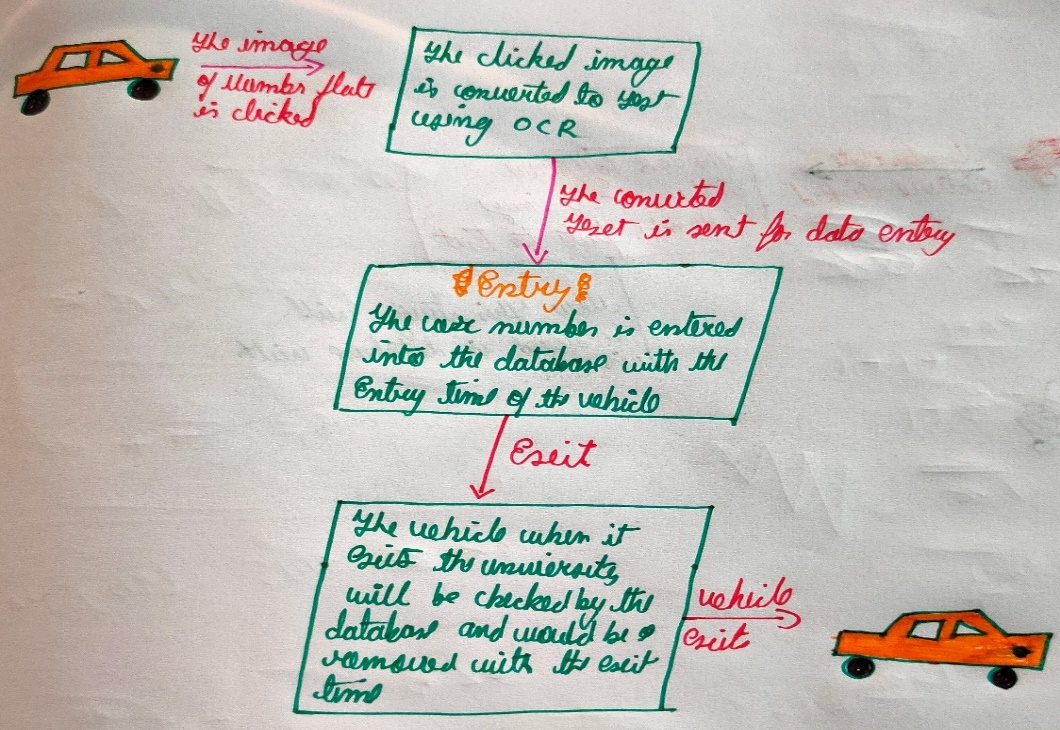 The image
of Number plate
is clicked
The clicked image
is converted to text
using OCR
The converted
Text is sent for data entry
Entry
The car number is entered
into the database with the
Entry time of the vehicle
Exit
The vehicle when it
exits the university
will be checked by the
database and would be
removed with the exit
time
vehicle
exits